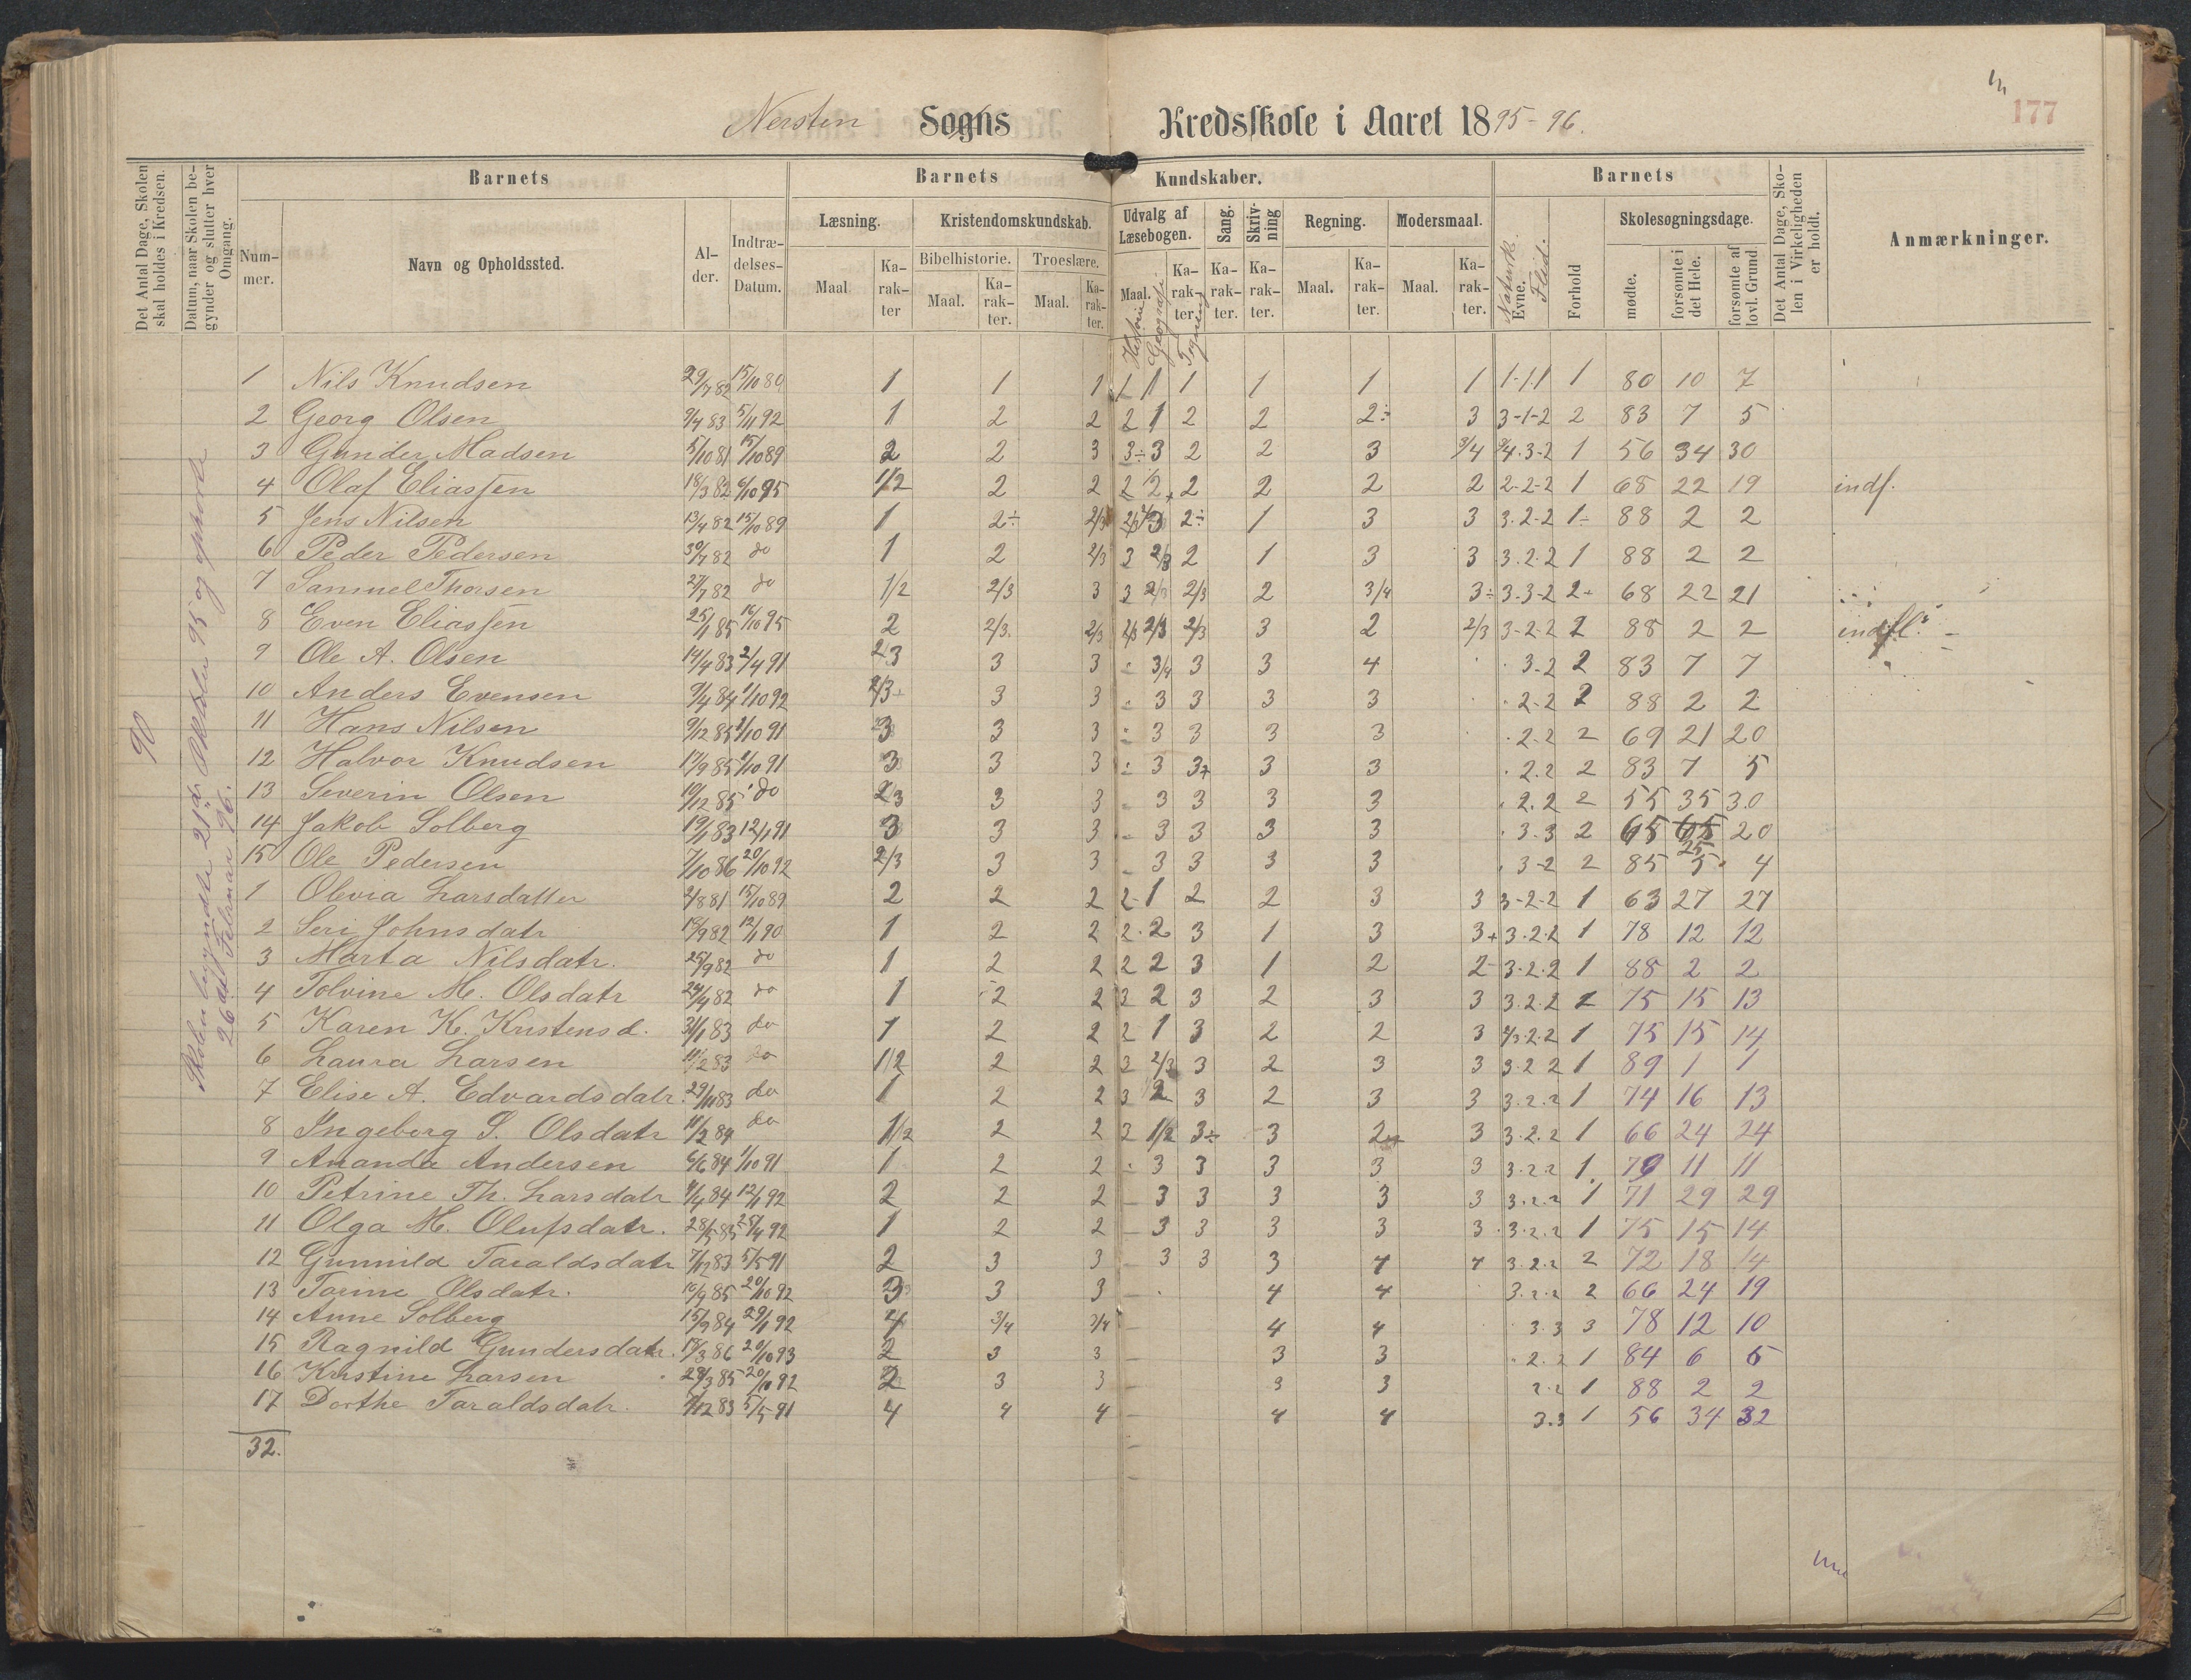 177
Nersten Sogns Kredsskole i Aaret 1895-96.
Det Antal Dage, Skolen skal holdes i Kredsen.
Datum, naar Skolen begynder og slutter hver Omgang.
Barnets
Barnets Kundskaber.
Barnets
Det Antal Dage, Skolen i Virkeligheden er holdt.
Anmærkninger.
Nummer.
Navn og Opholdssted.
Alder.
Indtrædelses-Datum.
Læsning.
Kristendomskundskab.
Udvalg af Læsebogen.
Sang.
Skrivning
Regning.
Modersmaal.
Evne.
Flid.
Forhold
Skolesøgningsdage.
Bibelhistorie.
Troeslære.
Maal
Karakter
Maal.
Karakter.
Maal.
Karakter.
Maal.
Karakter.
Karakter.
Karakter.
Maal.
Karakter.
Maal.
Karakter.
mødte.
forsømte i det Hele.
forsømte af lovl. Grund
Historie
Geografi
90
Skolen begyndte 21de Oktober 95 og ophørte
26de Februar 96.
1 Nils Knudsen 29/7 82 15/10 89 1 1 1 1 1 1 1 1 1 1-1-1 1 80 10 7
2 Georg Olsen 9/4 83 5/11 92 1 2 2 2 1 2 2 2÷ 3 3-1-2 2 83 7 5
3 Gunder Madsen 5/10 81 15/10 89 2 2 3 3÷ 3 2 2 3 3/4 3/4.3-2 1 56 34 30
4 Olaf Eliassen 18/3 82 6/10 95 1/2 2 2 2 1/2 2 2 2 2 2-2-2 1 68 22 19 indf.
5 Jens Nilsen 13/4 82 15/10 89 1 2÷ 2/3 2/3 3 2÷ 1 3 3 3.2-2 1÷ 88 2 2
6 Peder Pedersen 30/7 82 do 1 2 2/3 3 2/3 2 1 3 3 3.2.2 1 88 2 2
7 Samuel Thorsen 27/7 82 do 1/2 2/3 3 3 2/3 2/3 2 3/4 3÷ 3-3-2 2÷ 68 22 21
8 Even Eliassen 25/1 85 16/10 95 2 2/3 2/3 2/3 2/3 2/3 3 2 2/3 3-2-2 2 88 2 2 indfl.
9 Ole A. Olsen 14/4 83 2/4 91 2/3 3 3 ÷ 3/4 3 3 4 3-2 2 83 7 7
10 Anders Evensen 9/4 84 1/10 92 2/3÷ 3 3 ÷ 3 3 3 3 2-2 2 88 2 2
11 Hans Nilsen 9/12 85 1/10 91 3 3 3 ÷ 3 3 3 3 2-2 2 69 21 20
12 Halvor Knudsen 17/9 85 1/10 91 3 3 3 ÷ 3 3+ 3 3 2.2 2 83 7 5
13 Severin Olsen 10/12 85 do 2/3 3 3 - 3 3 3 3 2.2 2 55 35 30
14 Jakob Solberg 19/1 83 12/1 91 3 3 3 - 3 3 3 3 3-3 2 65 25 20
15 Ole Pedersen 7/10 86 20/10 92 2/3 3 3 - 3 3 3 3 3-2 2 85 5 4
1 Olevia Larsdatter 2/8 81 15/10 89 2 2 2 2-1 2 2 3 3 3-2-2 1 63 27 27
2 Seri Johnsdatr 18/9 82 12/1 90 1 2 2 2.2 3 1 3 3+ 3.2.2 1 78 12 12
3 Marta Nilsdatr. 25/9 82 do 1 2 2 2 2 3 1 2 2- 3-2.2 1 88 2 2
4 Tolvine M. Olsdatr 24/4 82 do 1 2 2 3 2 3 2 3 3 3.2.2 1 75 15 13
5 Karen K. Kristensd. 31/1 83 do 1 2 2 2 1 3 2 2 3 2.2 1 75 15 14
6 Laura Larsen 11/2 83 do 1/2 2 2 3 2/3 3 2 3 3 3.2 2 1 89 1 1
7 Elise A. Edvardsdatr. 29/11 83 do 1 2 2 3 2 3 2 3 3 3.2.2 1 74 16 13
8 Ingeborg S. Olsdatr 11/2 84 do 1/2 2 2 3 1/2 3÷ 3 2 3 3.2.2 1 66 24 24
9 Ananda Andersen 6/6 84 1/10 91 1 2 2 ÷ 3 3 3 3 3 3.2 2 1 79 11 11
10 Petrine Th. Larsdatr 4/4 84 12/1 92 2 2 2 - 3 3 3 3 3 3.2.2 1 71 29 29
11 Olga M. Olufsdatr. 28/5 85 25/4 92 1 2 2 - 3 3 3 3 3 3.2.2 1 75 15 14
12 Gunnild Taraldsdatr 7/12 83 5/5 91 2 3 3 3 3 3 4 4 3.2.2 2 72 18 14
13 Torine Olsdatr. 10/9 85 20/10 92 3 3 3 - 4 4 3.2.2 2 66 24 19
14 Anne Solberg 15/9 84 29/1 92 4 3/4 3/4 - 4 4 3.3 3 78 12 10
15 Ragnild Gundersdatr. 17/3 86 20/10 93 2 3 3 - 3 3 2.2 1 84 6 5
16 Kristine Larsen 29/3 85 20/10 92 2 3 3 - 3 3 2.2 1 88 2 2
17 Dorthe Taraldsdatr. 7/12 83 5/5 91 4 4 4 - 4 4 3.3 1 56 34 32
32.